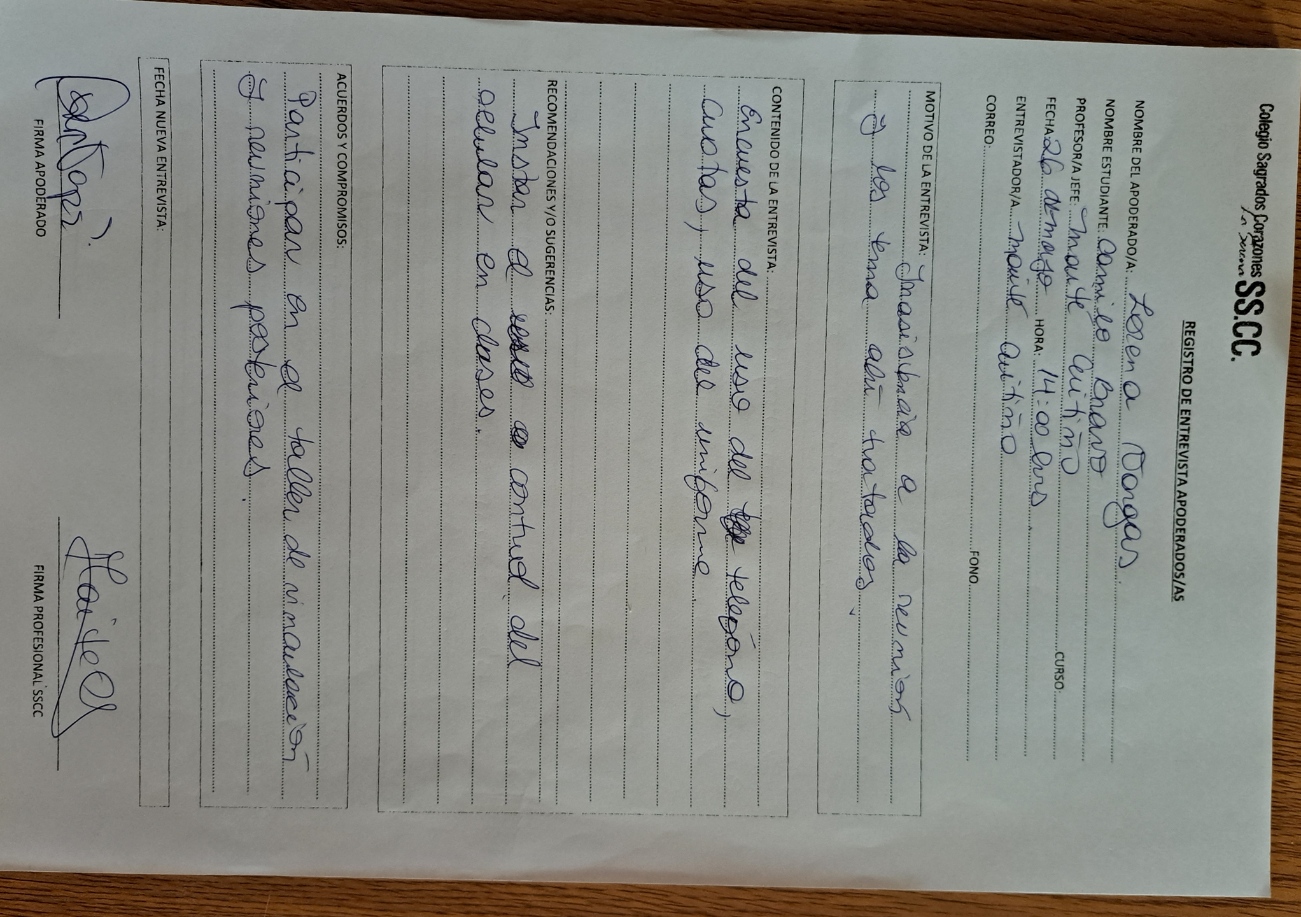 Colegio Sagrados Corazones SS.CC.
La Serena
REGISTRO DE ENTREVISTA APODERADOS/AS
NOMBRE DEL APODERADO/A: Lorena Vargas.
NOMBRE ESTUDIANTE: Camilo Bravo
PROFESOR/A JEFE: Maite Cuitiño
FECHA 26 de marzo HORA: 14:00 hrs. CURSO
ENTREVISTADOR/A. Maite Cuitiño
CORREO: FONO.
MOTIVO DE LA ENTREVISTA: Inasistencia a la reunión
y los tema ahí tratados.
CONTENIDO DE LA ENTREVISTA:
Encuesta del uso del teléfono,
Cuotas, uso del uniforme
RECOMENDACIONES Y/O SUGERENCIAS:
Instar el control del
celular en clases.
ACUERDOS Y COMPROMISOS:
Participar en el taller de vinculación
y reuniones posteriores.
FECHA NUEVA ENTREVISTA:
FIRMA APODERADO
FIRMA PROFESIONAL SSCC